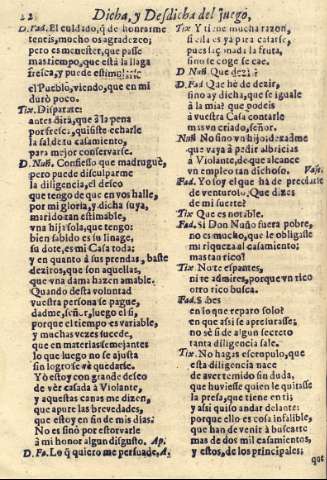 22 Dicha, y Desdicha del juego,
D. Fad. El cuidado, q̄ de honrarme
teneis, mucho os agradezco;
pero es menester, que passe
mas tiempo, que està la llaga
fresca, y puede
el Pueblo, viendo, que en mi
durò poco.
Tix. Disparate:
antes dirà, que à la pena
por fresca, quisiste echarle
la sal de tu casamiento,
para mejor conservarse.
D. Nuñ. Confiesso que madruguè,
pero puede disculparme
la diligencia, el deseo
que tengo de que en vos halle,
por mi gloria, y dicha suya,
marido tan estimable,
vna hija sola, que tengo:
bien sabido es su linage,
su dote, es mi Casa toda;
y en quanto à sus prendas, baste
deziros, que son aquellas,
que vna dama hazen amable.
Quando desta voluntad
vuestra persona se pague,
dadme, señor, luego el si,
porque el tiempo es variable,
y muchas vezes sucede,
que en materias semejantes
lo que luego no se ajusta
sin logro se vè quedarse.
Yo estoy con grande deseo
de vèr casada à Violante,
y aquestas canas me dizen,
que apure las brevedades,
que estoy en fin de mis dias.
No es sino por estorvarle
à mi honor algun disgusto. Ap.
D. Fa. Lo q̄ quiero me persuade, A.
Tix. Y tiene mucha razon,
si ella es ya para casarse,
pues la madia la fruta,
sino se coge se cae.
D. Nuñ. Que dezis?
D. Fad. Que he de dezir,
sino ay dicha, que se iguale
à la mia? que podeis
à vuestra Casa contarle
mas vn criado, señor.
Nuñ. No sino vn hijo: dexadme
que vaya à pedir albricias
à Violante, de que alcance
vn empleo tan dichoso. Vase.
Fad. Yo soy el que hà de preciarse
de venturoso. Que dizes
de mi suerte?
Tix. Que es notable.
Fad. Si Don Nuño fuera pobre,
no es mucho, que le obligasse
mi riqueza al casamiento;
mas tan rico?
Tix. No te espantes,
ni te admires, porque vn rico
otro rico busca.
Fad. Sabes
en lo que reparo solo?
en que assi se apressurasse;
no sè si de algun secreto
tanta diligencia sale.
Tix. No hagas escrupulo, que
esta diligencia nace
de avertemido sin duda,
que huviesse quien le quitasse
la presa, que tiene en ti;
y assi quiso andar delante:
porque ello es cosa infalible,
que han de venir à buscarte
mas de dos mil casamientos,
y estos, de los principales:
que